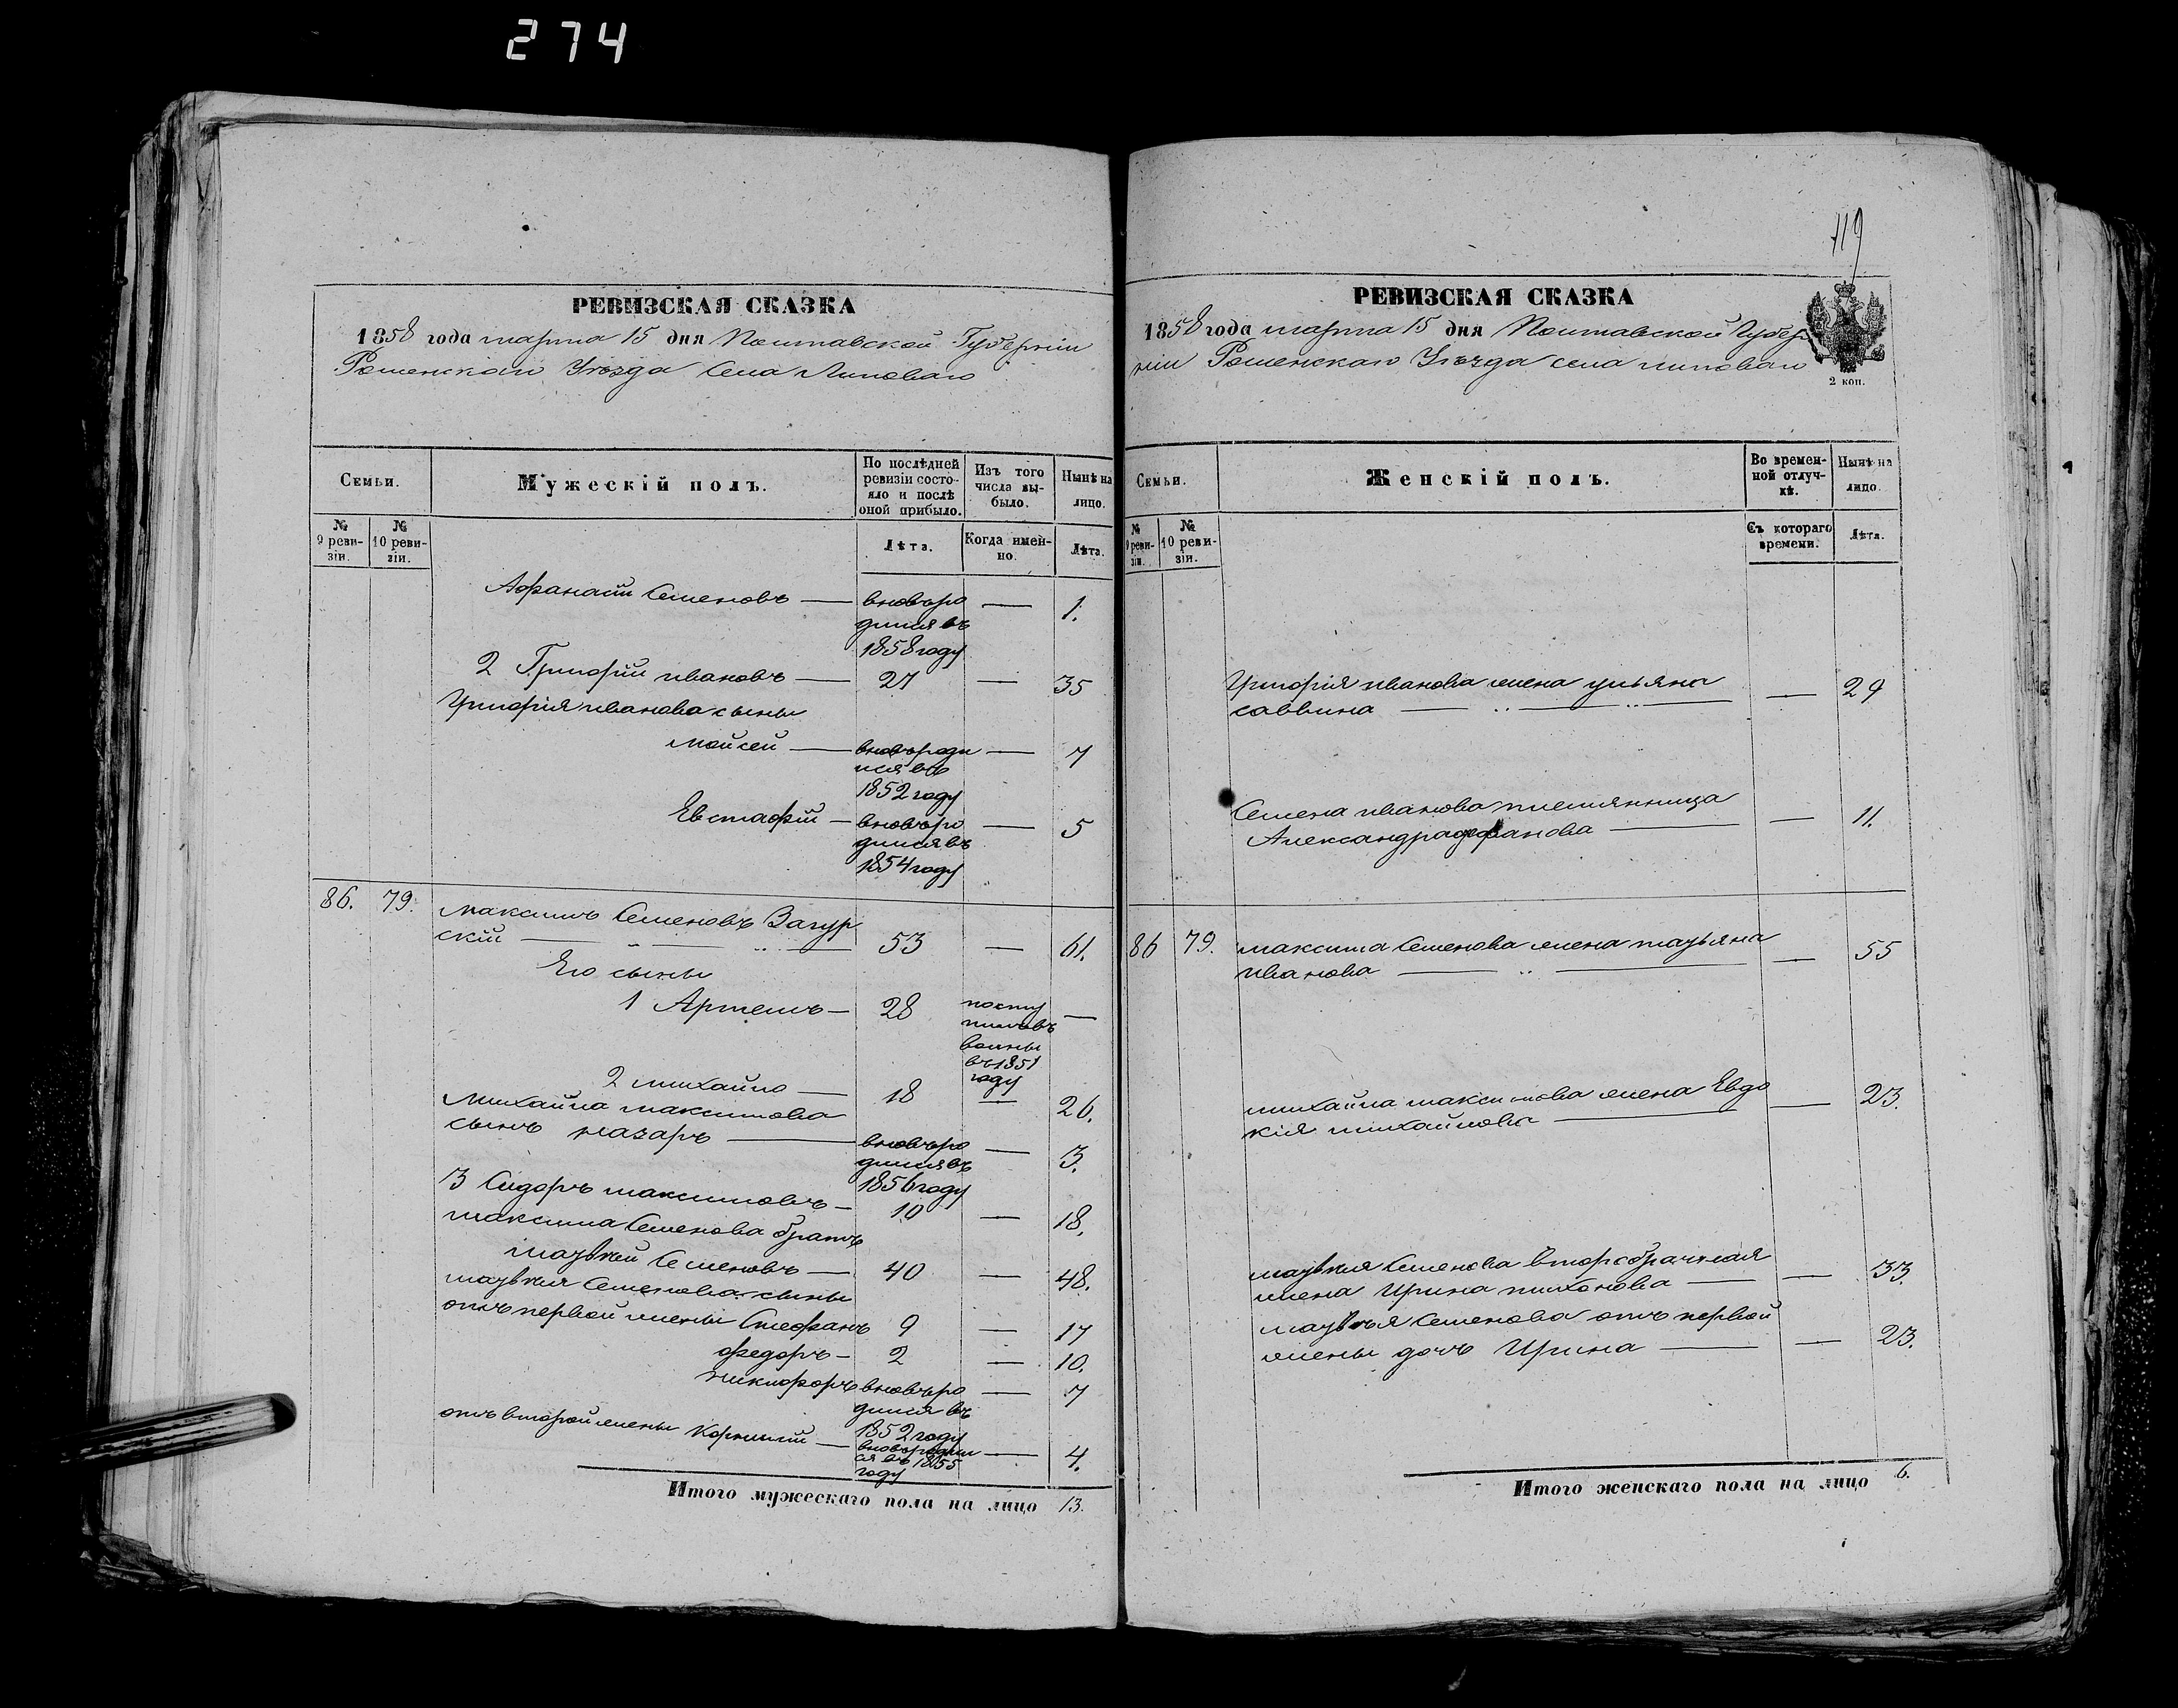 274
РЕВИЗСКАЯ СКАЗКА
1858 года марта 15 дня Полтавской Губерніи
Роменскаго Уѣзда Села Липоваго
Семьи.
№ 9 реви-зіи.
№ 10 реви-зіи.
Мужескій полъ.
По послѣдней
ревизіи состо-
яло и послѣ
оной прибыло.
Лѣта.
Изъ того
числа вы-
было.
Когда имен-
но.
Нынѣ на
лицо.
Лѣта.
Афанасій Семеновъ — вновьро — 1.
дился въ
1858 году
2 Григорій Ивановъ — 27 — 35
Григорія Иванова сыны
Мойсей — вновьроди — 7
лся въ
1852 году
Евстафій — вновьро — 5
дился въ
1854 году
86. 79. Максимъ Семеновъ Загур
скій — 53 — 61.
Его сыны
1 Артемъ — 28 посту —
пилъ въ
воины
въ 1851
году
2 Михайло — 18 — 26.
Михайла Максимова
сынъ Назаръ — вновьро — 3.
дился въ
1856 году
3 Сидоръ Максимовъ — 10 — 18.
Максима Семенова братъ
Матвѣй Семеновъ — 40 — 48.
Матвѣя Семенова сыны
отъ первой жены Стефанъ 9 — 17
Федоръ — 2 — 10.
Никифоръ вновьро — 7
дился въ
1852 году
отъ второй жены Корнилій — вновьродил — 4.
ся въ 1855
году
Итого мужескаго пола на лицо 13.
119
РЕВИЗСКАЯ СКАЗКА
1858 года марта 15 дня Полтавской Губер
ніи Роменскаго Уѣзда села Липоваго
2 коп.
Семьи.
№ 9 реви-зіи.
№ 10 реви-зіи.
Женскій полъ.
Во времен-
ной отлуч-
кѣ.
Съ котораго
времени.
Нынѣ на
лицо.
Лѣта.
Григорія Иванова жена Ульяна
Саввина — 29
Семена Иванова племянница
Александра — 11.
86 79. Максима Семенова жена Татьяна
Иванова — 55
Михайла Максимова жена Евдо
кія Михайлова — 23.
Матвѣя Семенова второбрачная
жена Ирина Тихонова — 33.
Матвѣя Семенова отъ первой
жены дочь Ирина — 23.
Итого женскаго пола на лицо 6.